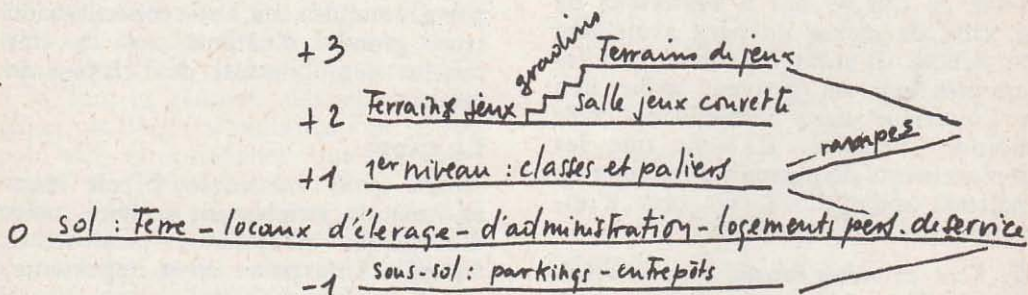 +3 gradins Terrains de jeux
+2 Terrains jeux salle jeux couverte
rampes
+1 1er niveau : classes et paliers
0 sol : Terre - locaux d'élevage - d'administration - logements pers. de service
-1 sous-sol : parkings - entrepôts